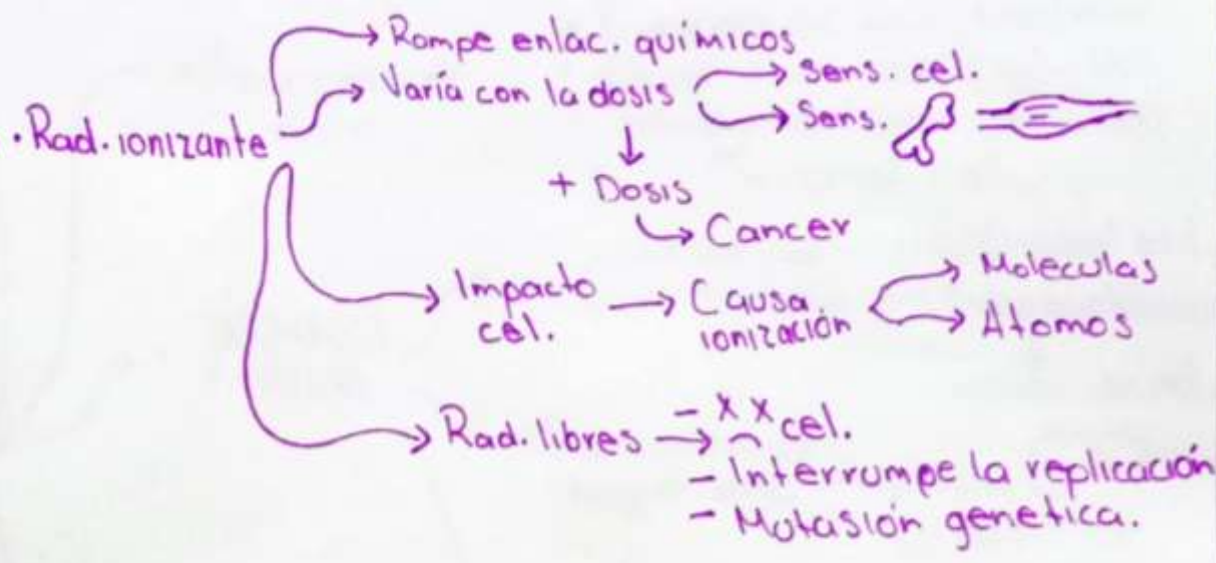 Rompe enlac. químicos
Varía con la dosis
Sens. cel.
Sens.
· Rad. ionizante
+ Dosis
Cancer
Impacto
cel.
Causa
ionización
Moleculas
Atomos
Rad. libres
- x x cel.
- Interrumpe la replicación
- Mutasión genetica.